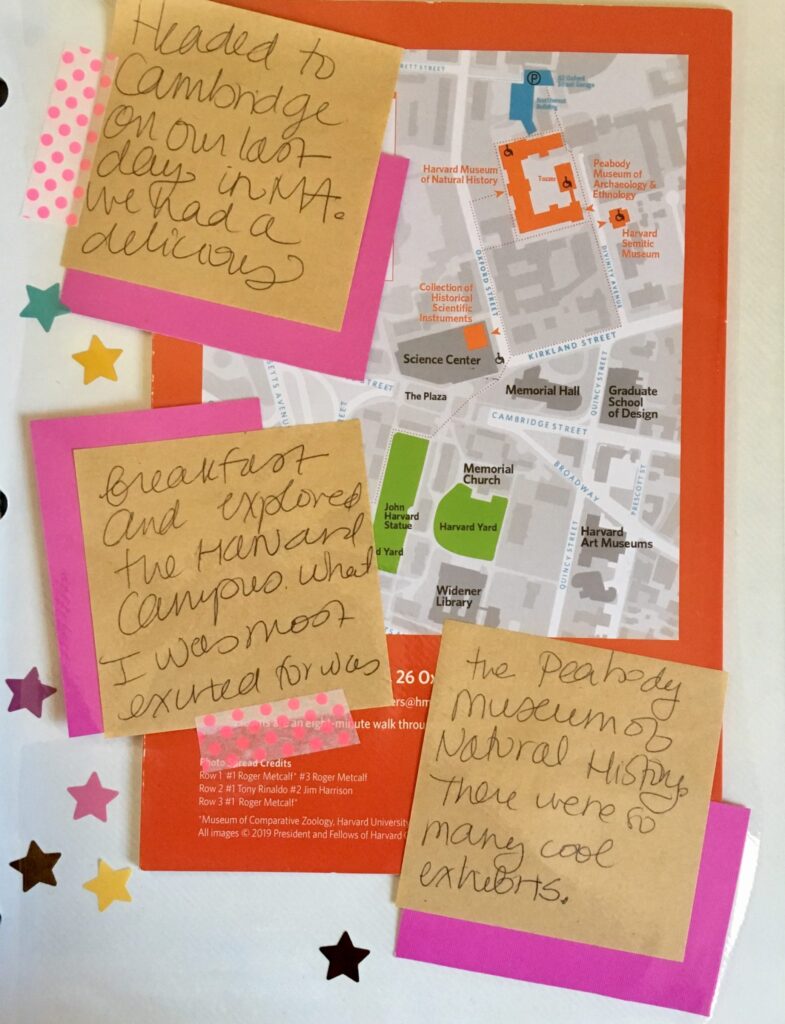 Headed to
Cambridge
on our last
day in MA.
we had a
delicious
Breakfast
and explored
the Harvard
Campus. what
I was most
excited for was
the Peabody
Museum of
Natural History.
There were so
many cool
exhibits.
ETT STREET
P
52 Oxford
Street Garage
Northwest
Building
Harvard Museum
of Natural History
Tozzer
Peabody
Museum of
Archaeology &
Ethnology
Harvard
Semitic
Museum
OXFORD STREET
DIVINITY AVENUE
Collection of
Historical
Scientific
Instruments
Science Center
KIRKLAND STREET
SETTS AVENUE
STREET
The Plaza
Memorial Hall
QUINCY STREET
Graduate
School
of Design
CAMBRIDGE STREET
BROADWAY
PRESCOTT ST
Memorial
Church
John
Harvard
Statue
Harvard Yard
d Yard
Harvard
Art Museums
QUINCY STREET
Widener
Library
26 Ox
ers@hm
an eight-minute walk throu
Photo Spread Credits
Row 1 #1 Roger Metcalf* #3 Roger Metcalf
Row 2 #1 Tony Rinaldo #2 Jim Harrison
Row 3 #1 Roger Metcalf*
*Museum of Comparative Zoology, Harvard University
All images © 2019 President and Fellows of Harvard